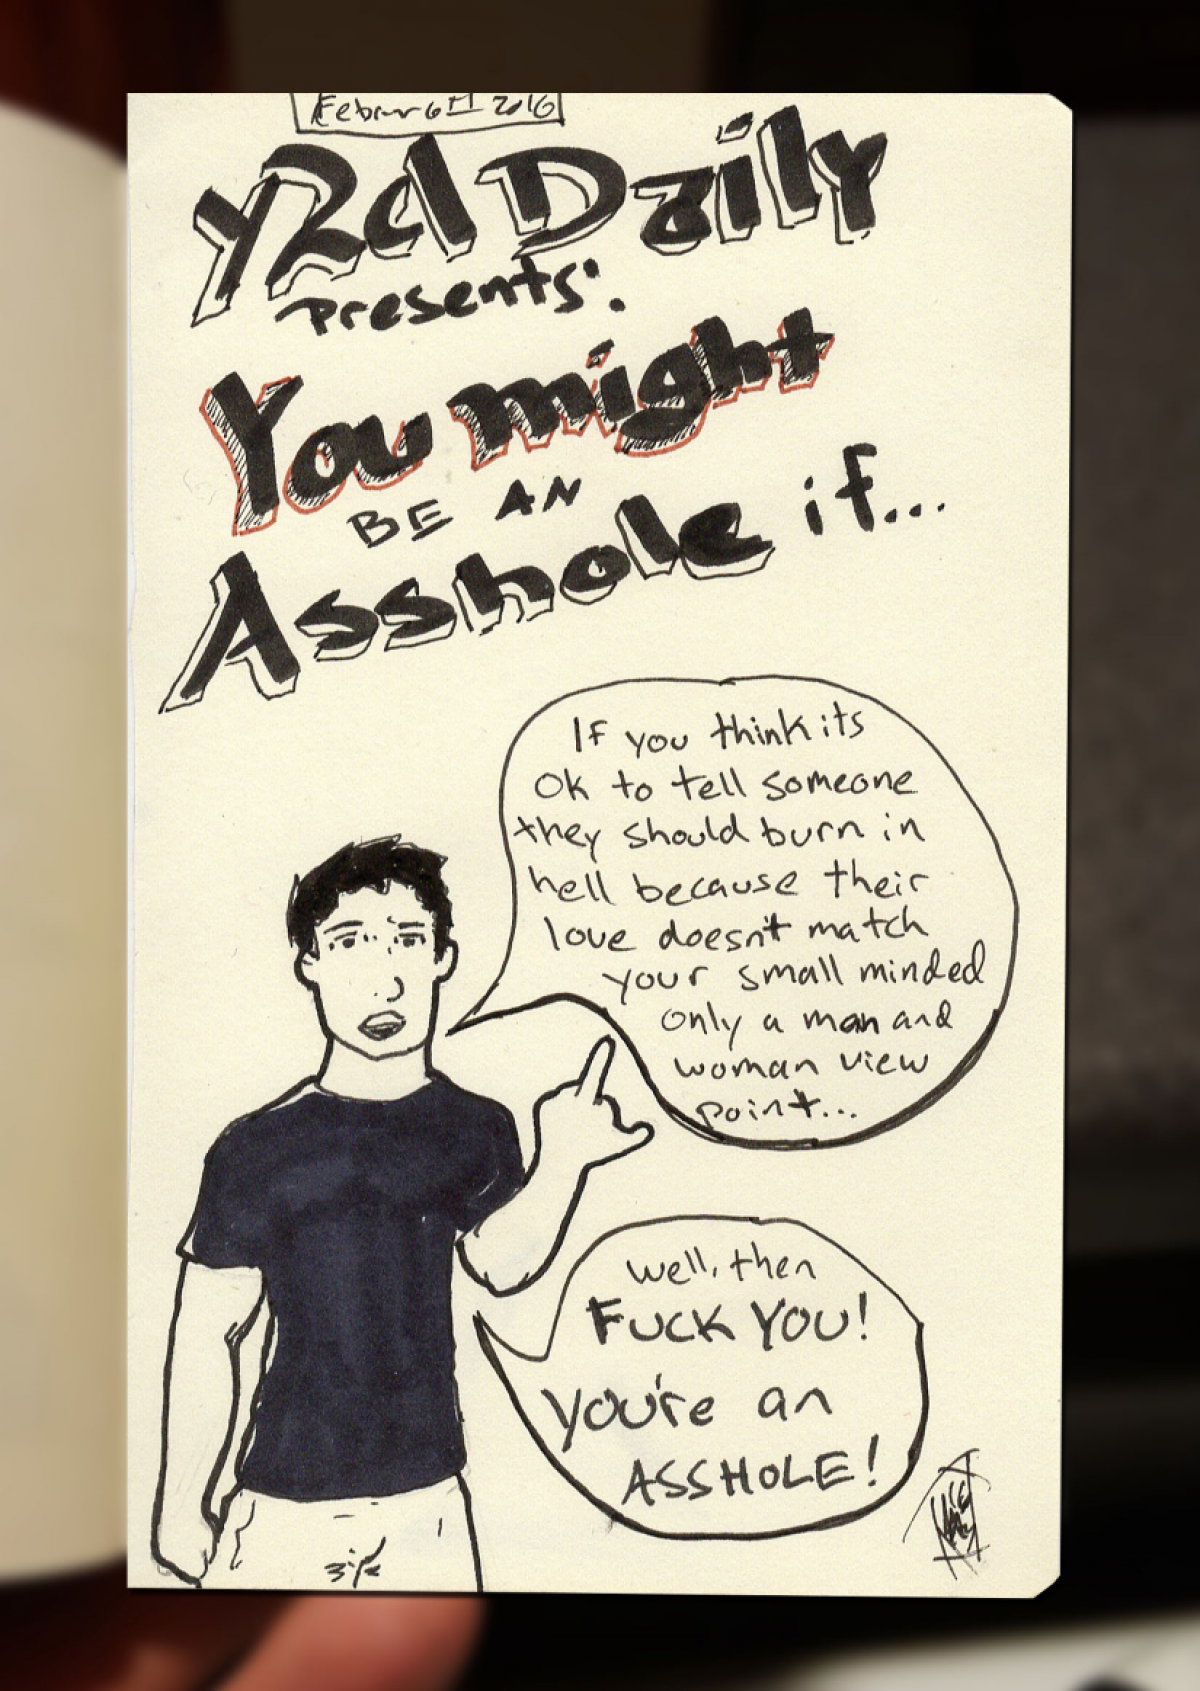 Februar 6th 2016
Y2d Daily
Presents:
You might
BE AN
Asshole if...
If you think its
ok to tell someone
they should burn in
hell because their
love doesn't match
your small minded
only a man and
woman view
point...
well, then
FUCK YOU!
You're an
ASSHOLE!